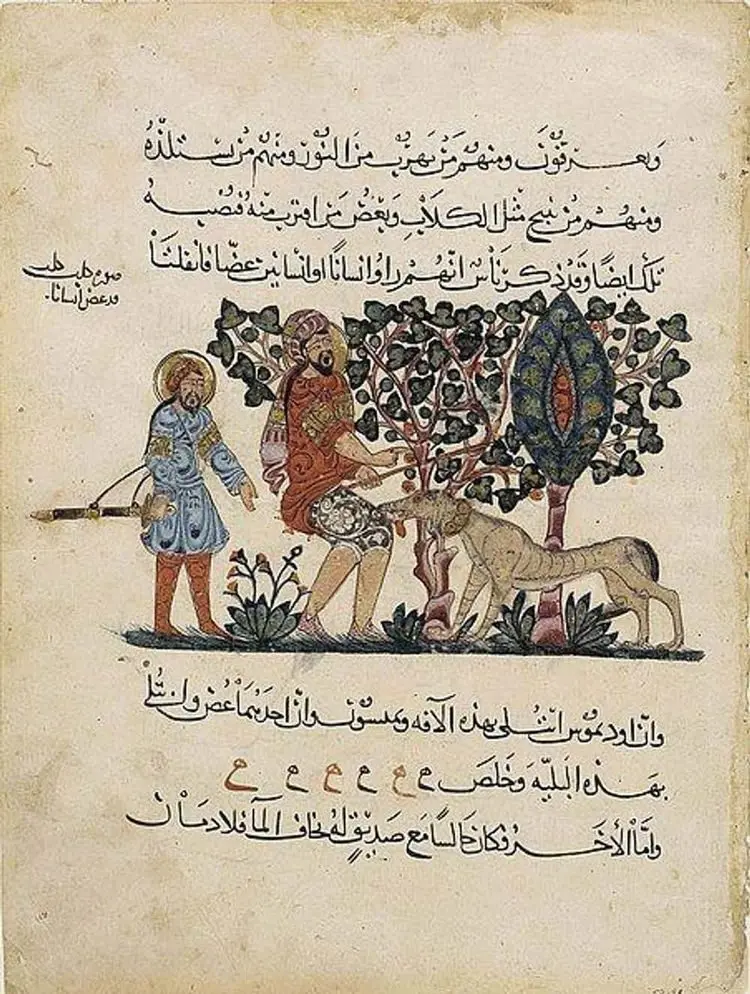 وبعـرقون ومنهم من يهرب من النور ومنهم من يستلذه
ومنهم من ينبح مثل الكلاب وبعض من اقترب منه فتصيبه
تلك ايضًا وقد ذكر ناس انهم راوا انسانًا او انسانين عضّا فانفلتا
صورة كلب كلب
قد عض انسانا
وان اوديموس ابتلى بهذه الآفه وان احدهما عض وابتلي
بهذه البليّه وخلص
وامّا الأخر فكان جالسًا مع صديق له يخاف الما فلا دمان